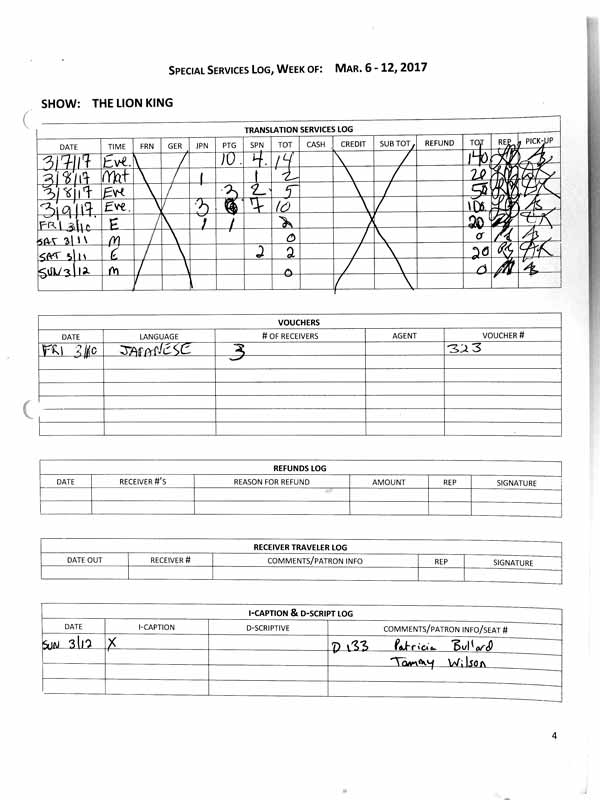 SPECIAL SERVICES LOG, WEEK OF: MAR. 6 - 12, 2017
SHOW: THE LION KING
TRANSLATION SERVICES LOG
DATE TIME FRN GER JPN PTG SPN TOT CASH CREDIT SUB TOT REFUND TOT REP PICK-UP
3/7/17 Eve. 10 4 14 140
3/8/17 Mat 1 1 2 20
3/8/17 Eve 3 2 5 50
3/9/17 Eve. 3 7 10 100
FRI 3/10 E 1 1 2 20
SAT 3/11 M 0 0
SAT 3/11 E 2 2 20
SUN 3/12 M 0 0
VOUCHERS
DATE LANGUAGE # OF RECEIVERS AGENT VOUCHER #
FRI 3/10 JAPANESE 3 323
REFUNDS LOG
DATE RECEIVER #'S REASON FOR REFUND AMOUNT REP SIGNATURE
RECEIVER TRAVELER LOG
DATE OUT RECEIVER # COMMENTS/PATRON INFO REP SIGNATURE
I-CAPTION & D-SCRIPT LOG
DATE I-CAPTION D-SCRIPTIVE COMMENTS/PATRON INFO/SEAT #
SUN 3/12 X D 133 Patricia Bullard
Tammy Wilson
4